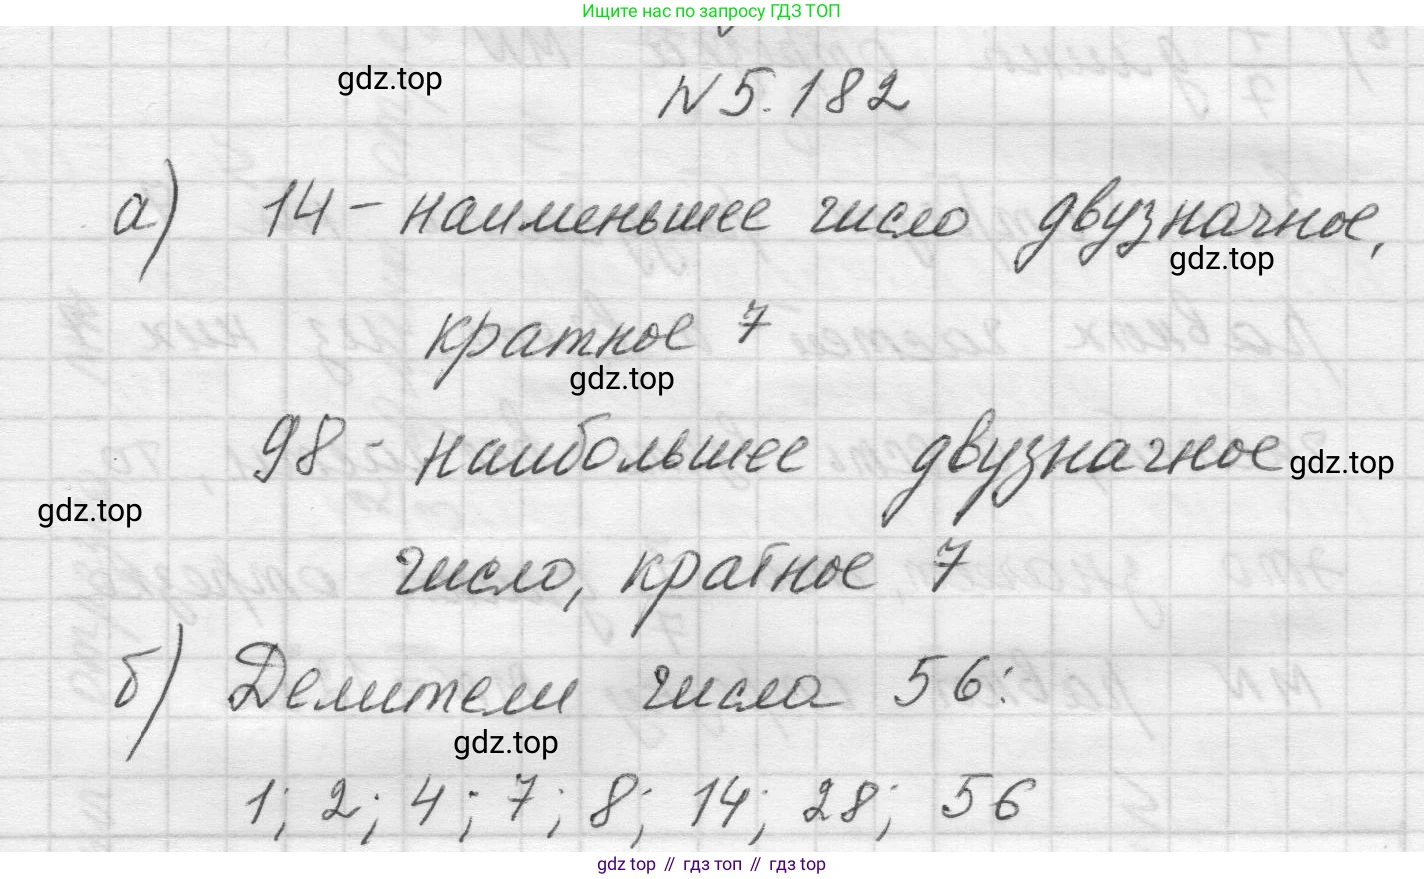 Ищите нас по запросу ГДЗ ТОП
gdz.top
N 5.182
а) 14 - наименьшее число двузначное,
gdz.top
кратное 7
gdz.top
98 - наибольшее двузначное
gdz.top
gdz.top
число, кратное 7
б) Делители числа 56:
gdz.top
1; 2; 4; 7; 8; 14; 28; 56
gdz top // гдз топ // gdz top